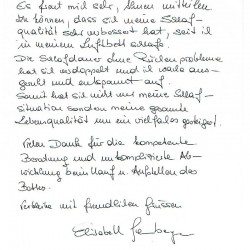 Es freut mich sehr, Ihnen mitteilen
zu können, dass sich meine Schlaf-
qualität sehr verbessert hat, seit ich
in meinem Luftbett schlafe.
Die Schlafdauer ohne Rückenprobleme
hat sich verdoppelt und ich wache aus-
geruht und entspannt auf.
Somit hat sich nicht nur meine Schlaf-
situation sondern meine gesamte
Lebensqualität um ein vielfaches gesteigert.
Vielen Dank für die kompetente
Beratung und unkomplizierte Ab-
wicklung beim Kauf u. Auffüllen des
Bettes.
Verbleibe mit freundlichen Grüssen
Elisabeth